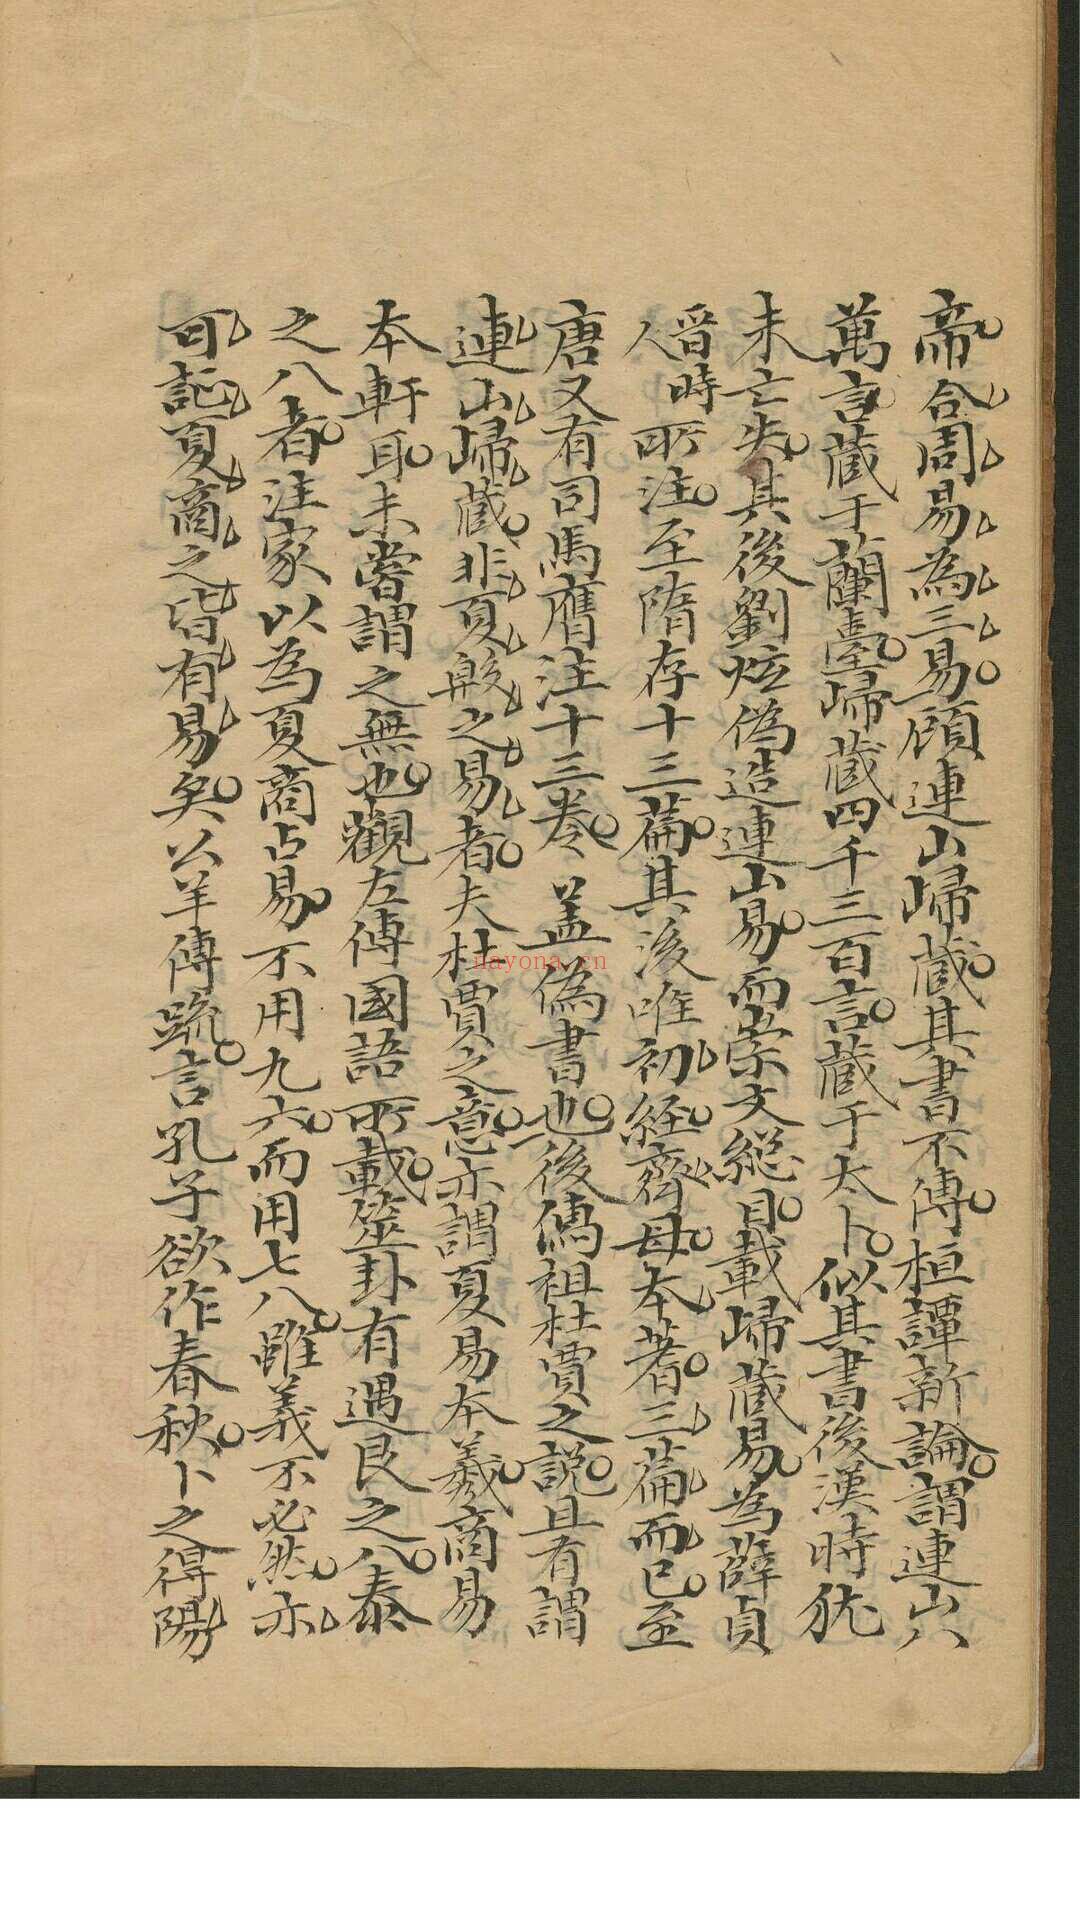 帝合周易為三易顧連山歸藏其書不傳桓譚新論謂連山八
萬言藏于蘭臺歸藏四千三百言藏于太卜似其書後漢時猶
未亡失其後劉炫偽造連山易而崇文總目載歸藏易為薛貞
晉時
人所注至隋存十三篇其後唯初經齊母本蓍三篇而已至
唐又有司馬膺注十三卷蓋偽書也後儒祖杜賈之說且有謂
連山歸藏非夏殷之易者夫杜賈之意亦謂夏易本羲商易
本軒耳未嘗謂之無也觀左傳國語所載筮卦有遇艮之八泰
之八者注家以為夏商占易不用九六而用七八雖義不必然亦
可証夏商之皆有易矣公羊傳疏言孔子欲作春秋卜之得陽
nayona.cn